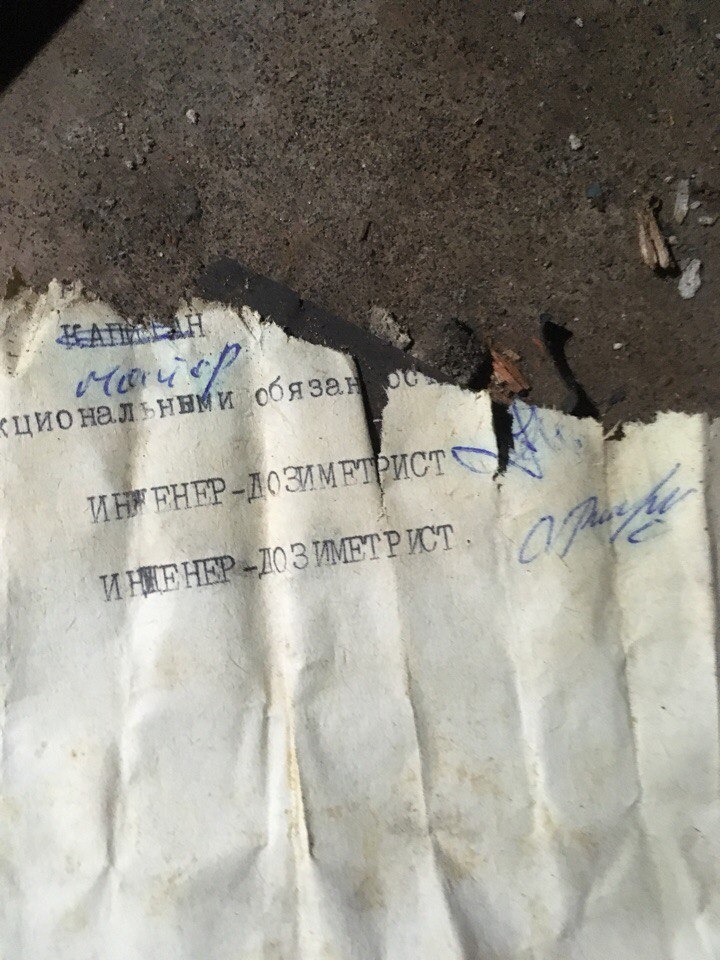 КАПИТАН
майор
кциональными обязанност
ИНЖЕНЕР-ДОЗИМЕТРИСТ
ИНЖЕНЕР-ДОЗИМЕТРИСТ